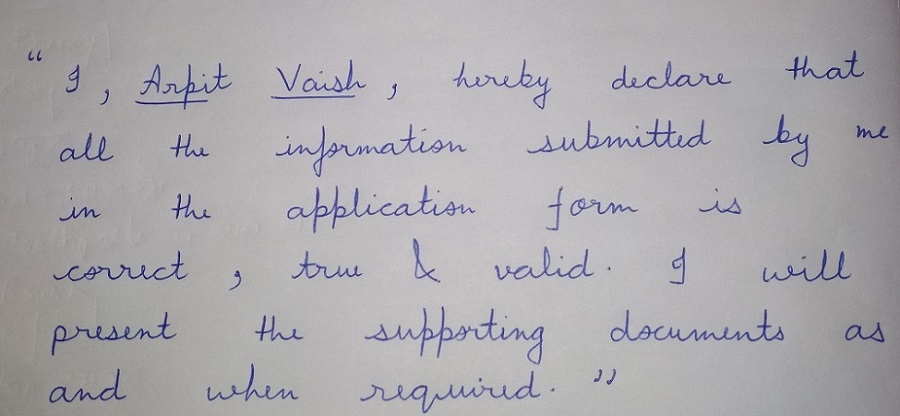 “ I, Arpit Vaish, hereby declare that
all the information submitted by me
in the application form is
correct, true & valid. I will
present the supporting documents as
and when required. ”